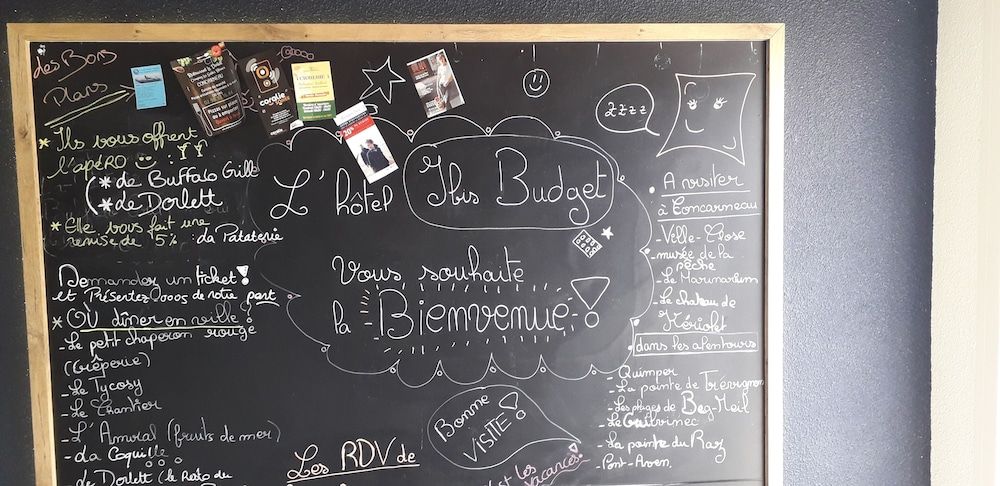 des Bons
Plans
* Ils vous offrent
l'apéro
(* de Buffalo Grill
(* de Dorlett
* Elle vous fait une
remise de 5% : da Pataterie
Demandez un ticket !
et Présentez de notre part
* OÙ dîner en ville ?
- Le petit chaperon rouge
(Crêperie)
- Le Tycosy
- Le Chantier
- L'Amiral (fruits de mer)
- La Coquille
de Dorlett (le Resto du
coralie
L'hôtel Ibis Budget
Vous souhaite
la Bienvenue !
Bonne
VISITE !
Les RDV de
est les
vacances
zzzz
A visiter
à Concarneau
- Ville-Close
- musée de la
pêche
- Le Marinarium
- Le chateau de
Kériolet
dans les alentours
- Quimper
- La pointe de Trévignon
- Les plages de Beg-Meil
- Le Guilvinec
- La pointe du Raz
- Pont-Aven